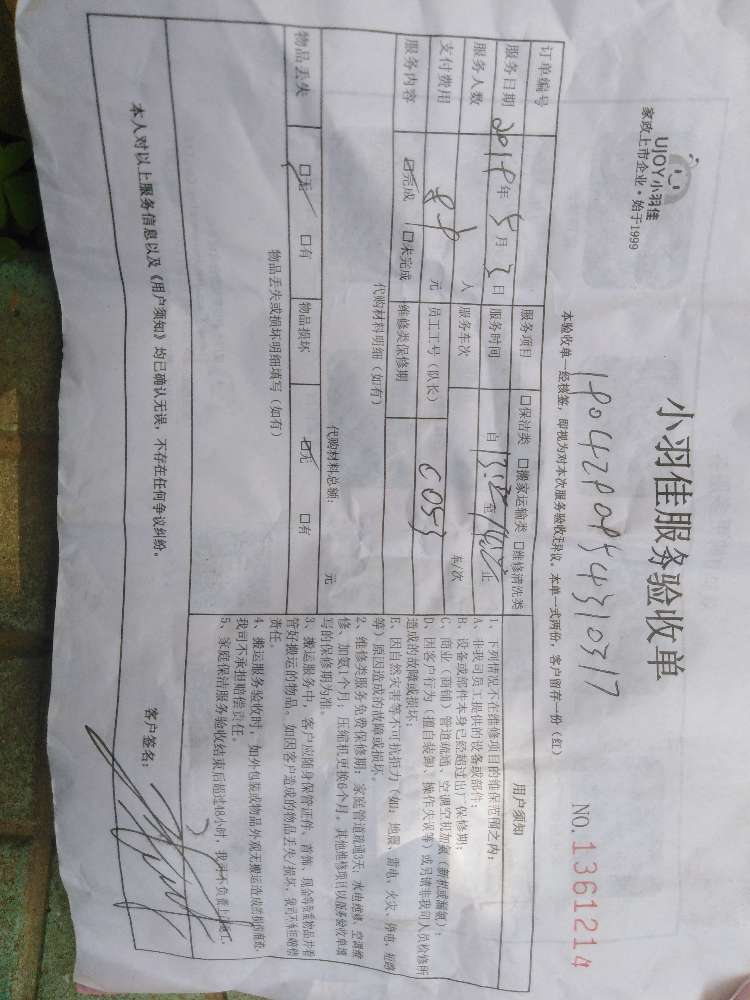 UJOY小羽佳
家政上市企业·始于1999
小羽佳服务验收单
NO.1361214
本验收单一经核签，即视为对本次服务验收无异议。本单一式两份，客户留存一份（红）
订单编号
服务项目 □保洁类 □搬家运输类 □维修清洗类
服务日期 年 5月 3日
服务时间 自 至 止
服务人数 人
服务车次 车/次
支付费用 元
员工工号（队长） C053
服务内容 ☑完成 □未完成
维修类保修期
代购材料明细（如有）
代购材料总额： 元
物品丢失 ☑无 □有
物品损坏 ☑无 □有
物品丢失或损坏明细填写（如有）
用户须知
1、下列情况不在维修项目的维保范围之内：
A、非我司员工提供的设备或部件；
B、设备或部件本身已经超过出厂保修期；
C、商业（商铺）管道疏通、空调空机加氨（新机或漏氨）；
D、因客户行为（擅自装卸、操作失误等）或另请非我司人员检修所
造成的故障或损坏；
E、因自然灾害等不可抗拒力（如：地震、雷电、火灾、停电、短路
等）原因造成的故障或损坏。
2、维修类服务免费保修期：家庭管道疏通3天；水电维修、空调维
修、加氨1个月；压缩机更换6个月。其他维修项目以服务验收单填
写的保修期为准。
3、搬运服务中，客户应随身保管证件、首饰、现金等贵重物品并看
管好搬运的物品。如因客户造成的物品丢失/损坏，我司不承担赔偿
责任。
4、搬运服务验收时，如外包装或物品外观无搬运造成的损伤痕迹，
我司不承担赔偿责任。
5、家庭保洁服务验收结束后超过48小时，我司不负责
本人对以上服务信息以及《用户须知》均已确认无误，不存在任何争议纠纷。
客户签名：